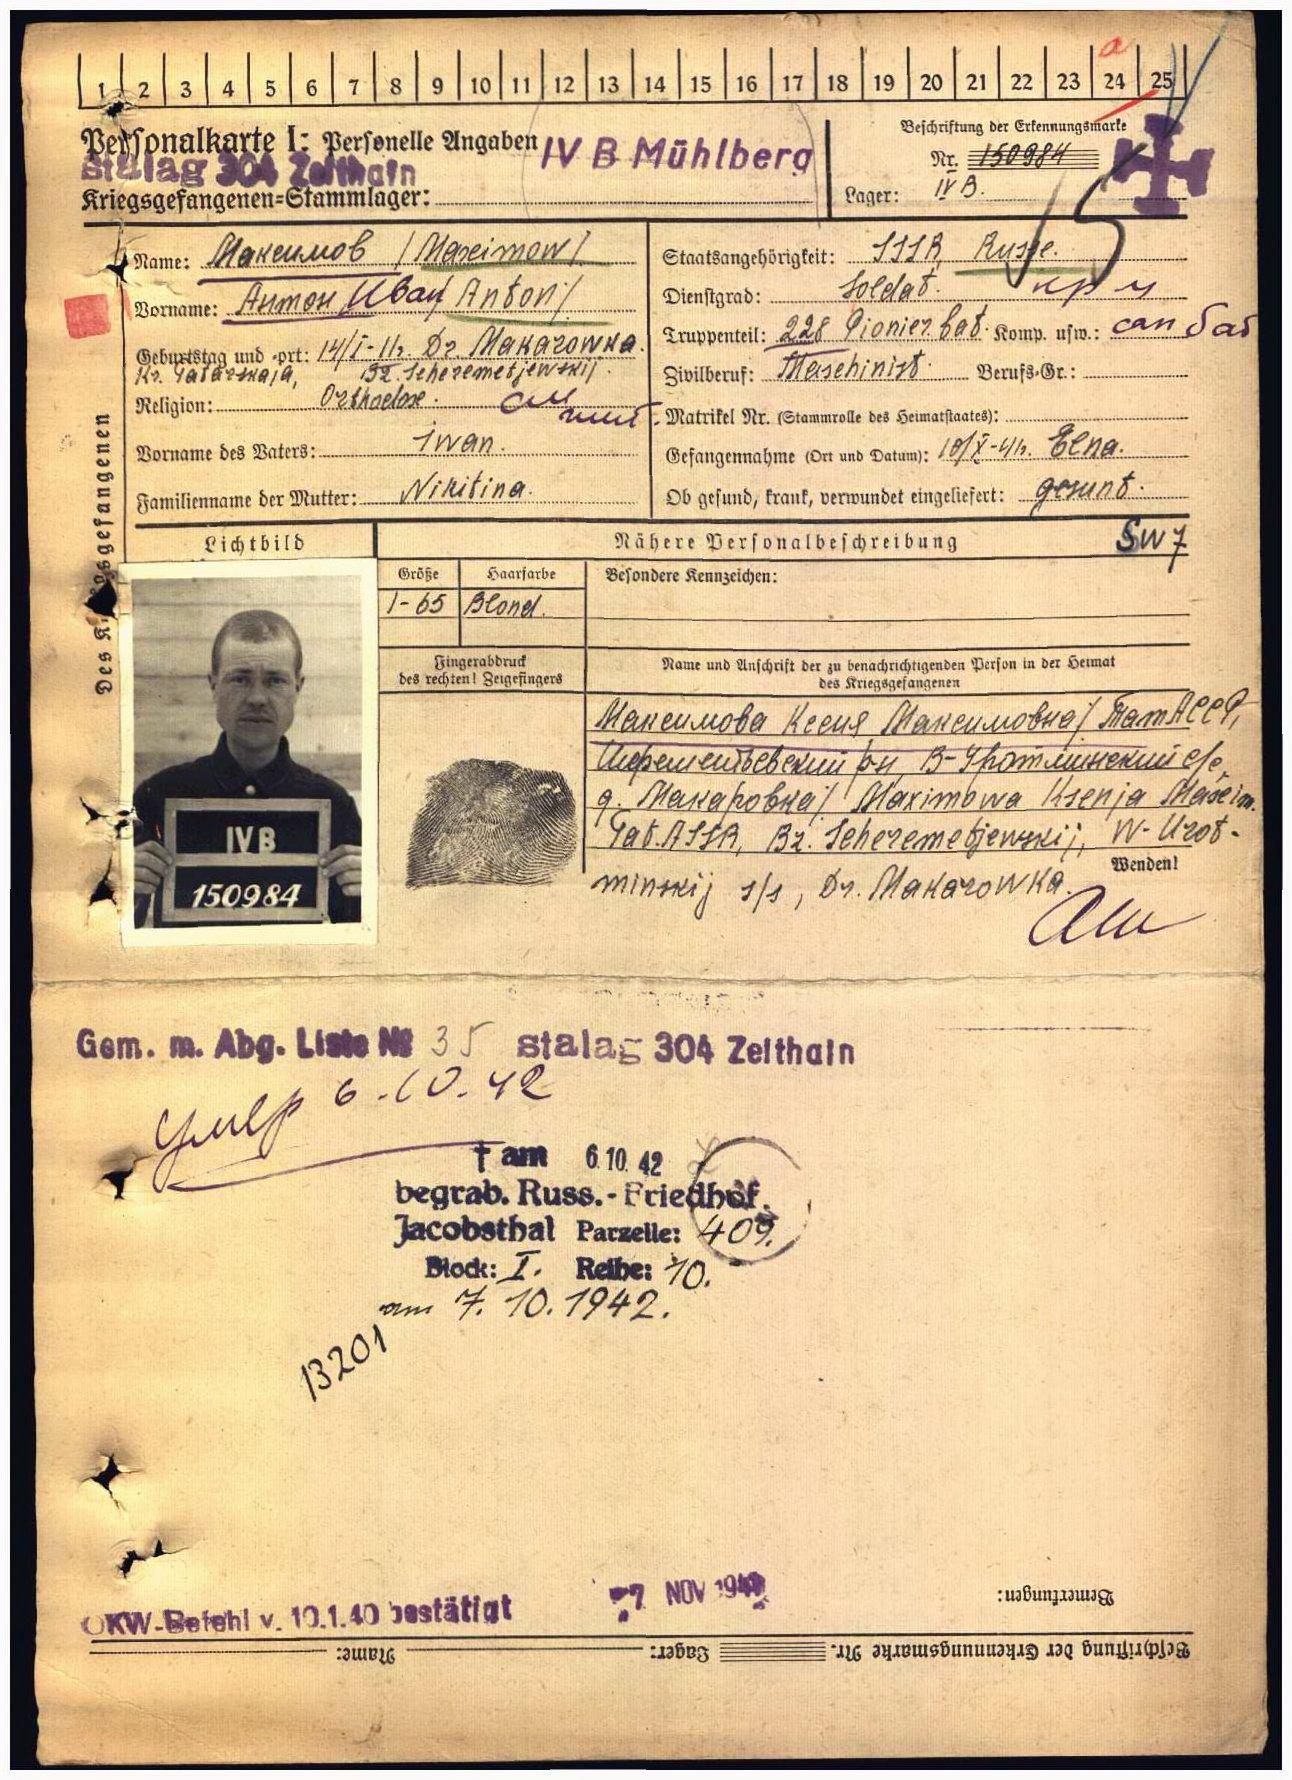 1 2 3 4 5 6 7 8 9 10 11 12 13 14 15 16 17 18 19 20 21 22 23 24 25
a
Personalkarte I: Personelle Angaben
IV B Mühlberg
stalag 304 Zeithain
Kriegsgefangenen=Stammlager:
Beschriftung der Erkennungsmarke
Nr. 150984
Lager: IV B.
Des Kriegsgefangenen
Name: Максимов / Maximow /
Vorname: Антон Иван / Anton /
Geburtstag und -ort: 14/I-11. Dr. Makarowka.
Kr. Tatarskaja, Bz. Scheremetjewskij.
Religion: Orthodox.
Vorname des Vaters: Iwan.
Familienname der Mutter: Nikitina.
Staatsangehörigkeit: SSSR, Russe.
Dienstgrad: Soldat.
Truppenteil: 228 Pionier bat. Komp. usw.:
Zivilberuf: Maschinist. Berufs-Gr.:
Matrikel Nr. (Stammrolle des Heimatstaates):
Gefangennahme (Ort und Datum): 10/X-41. Elna.
Ob gesund, krank, verwundet eingeliefert: gesunt.
Lichtbild
Nähere Personalbeschreibung
SW7
Größe
Haarfarbe
Besondere Kennzeichen:
1-65
Blond.
Fingerabdruck
des rechten! Zeigefingers
Name und Anschrift der zu benachrichtigenden Person in der Heimat
des Kriegsgefangenen
IV B
150984
Максимова Ксения Максимовна / ТатАССР,
Шереметьевский р-н, В-Уратминский с/с,
д. Макаровка / Maximowa Ksenja Maxim.
Tat.ASSR, Bz. Scheremetjewskij, W-Urat-
minskij s/s, Dr. Makarowka.
Wenden!
Gem. m. Abg. Liste № 35 stalag 304 Zeithain
Умер 6.10.42
† am 6.10.42
begrab. Russ.-Friedhof
Jacobsthal Parzelle: 409.
Block: I. Reihe: 10.
am 7.10.1942.
13201
OKW-Befehl v. 10.1.40 bestätigt
-7. NOV 194
Bemerkungen:
Beschriftung der Erkennungsmarke Nr. Lager: Name: